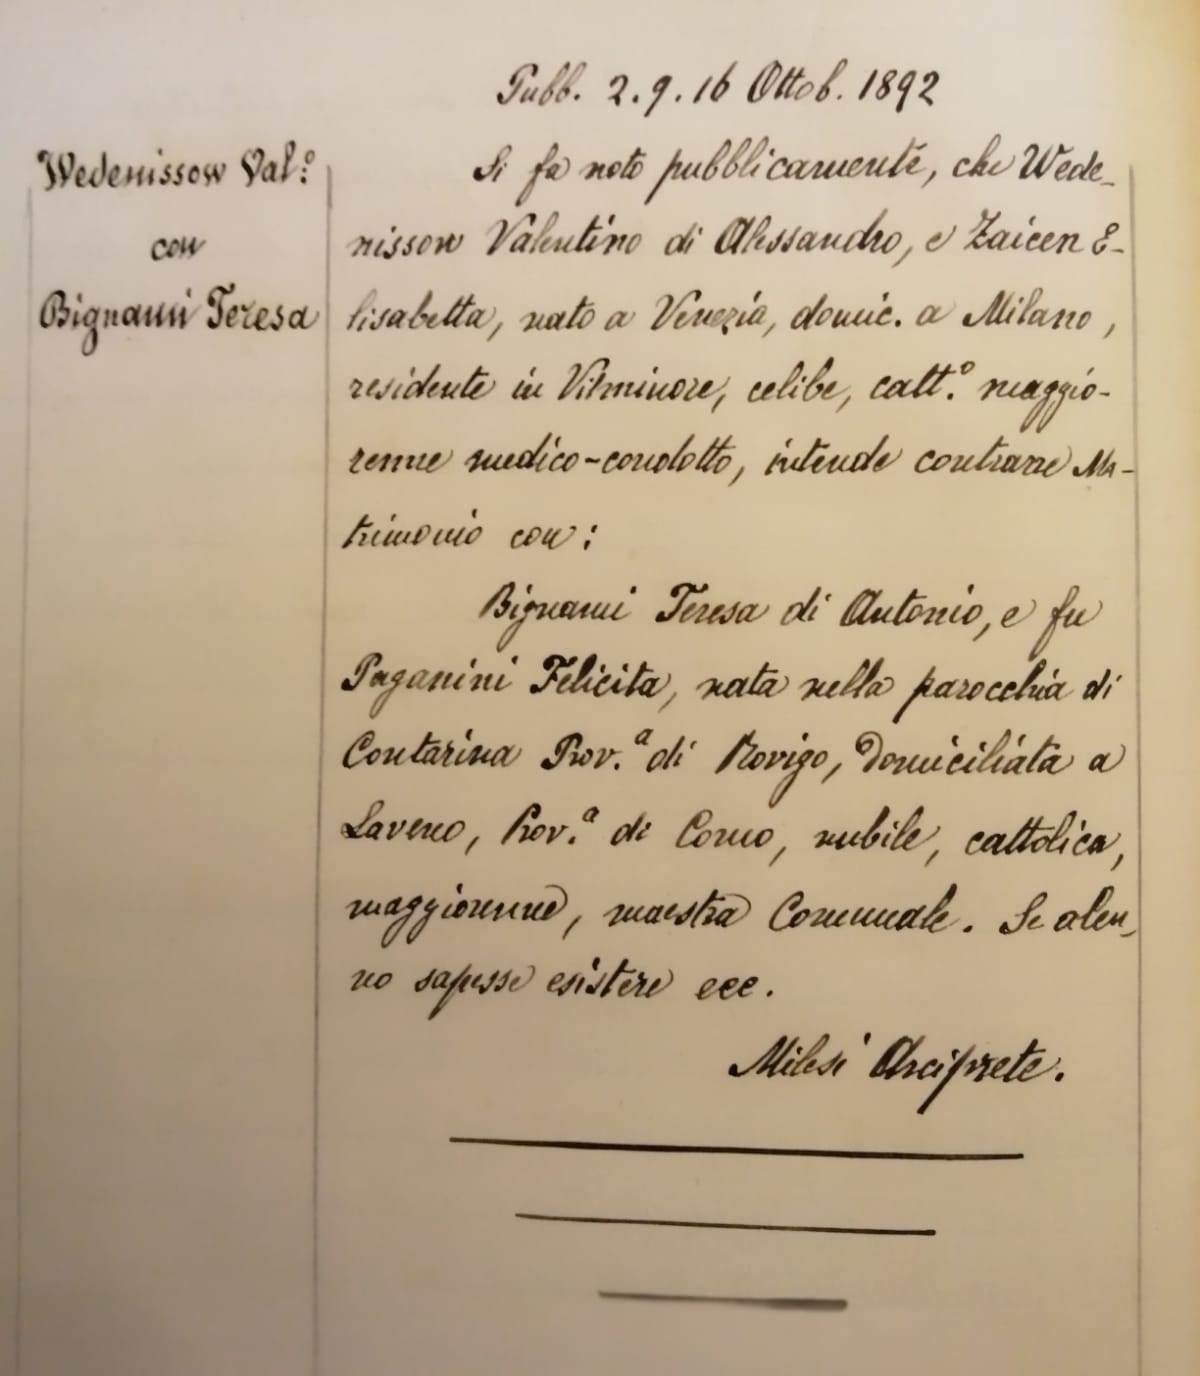 Pubb. 2. 9. 16 Ottob. 1892
Wedenissow Val.º
con
Bignami Teresa
Si fa noto pubblicamente, che Wede-
nissow Valentino di Alessandro, e Zaicen E-
lisabetta, nato a Venezia, domic. a Milano,
residente in Vilminore, celibe, catt.º maggio-
renne medico-condotto, intende contrarre Ma-
trimonio con:
Bignami Teresa di Antonio, e fu
Paganini Felicita, nata nella parocchia di
Contarina Prov.ª di Rovigo, Domiciliata a
Laveno, Prov.ª di Como, nubile, cattolica,
maggiorenne, maestra Comunale. Se alcu-
no sapesse esistere ecc.
Milesi Arciprete.